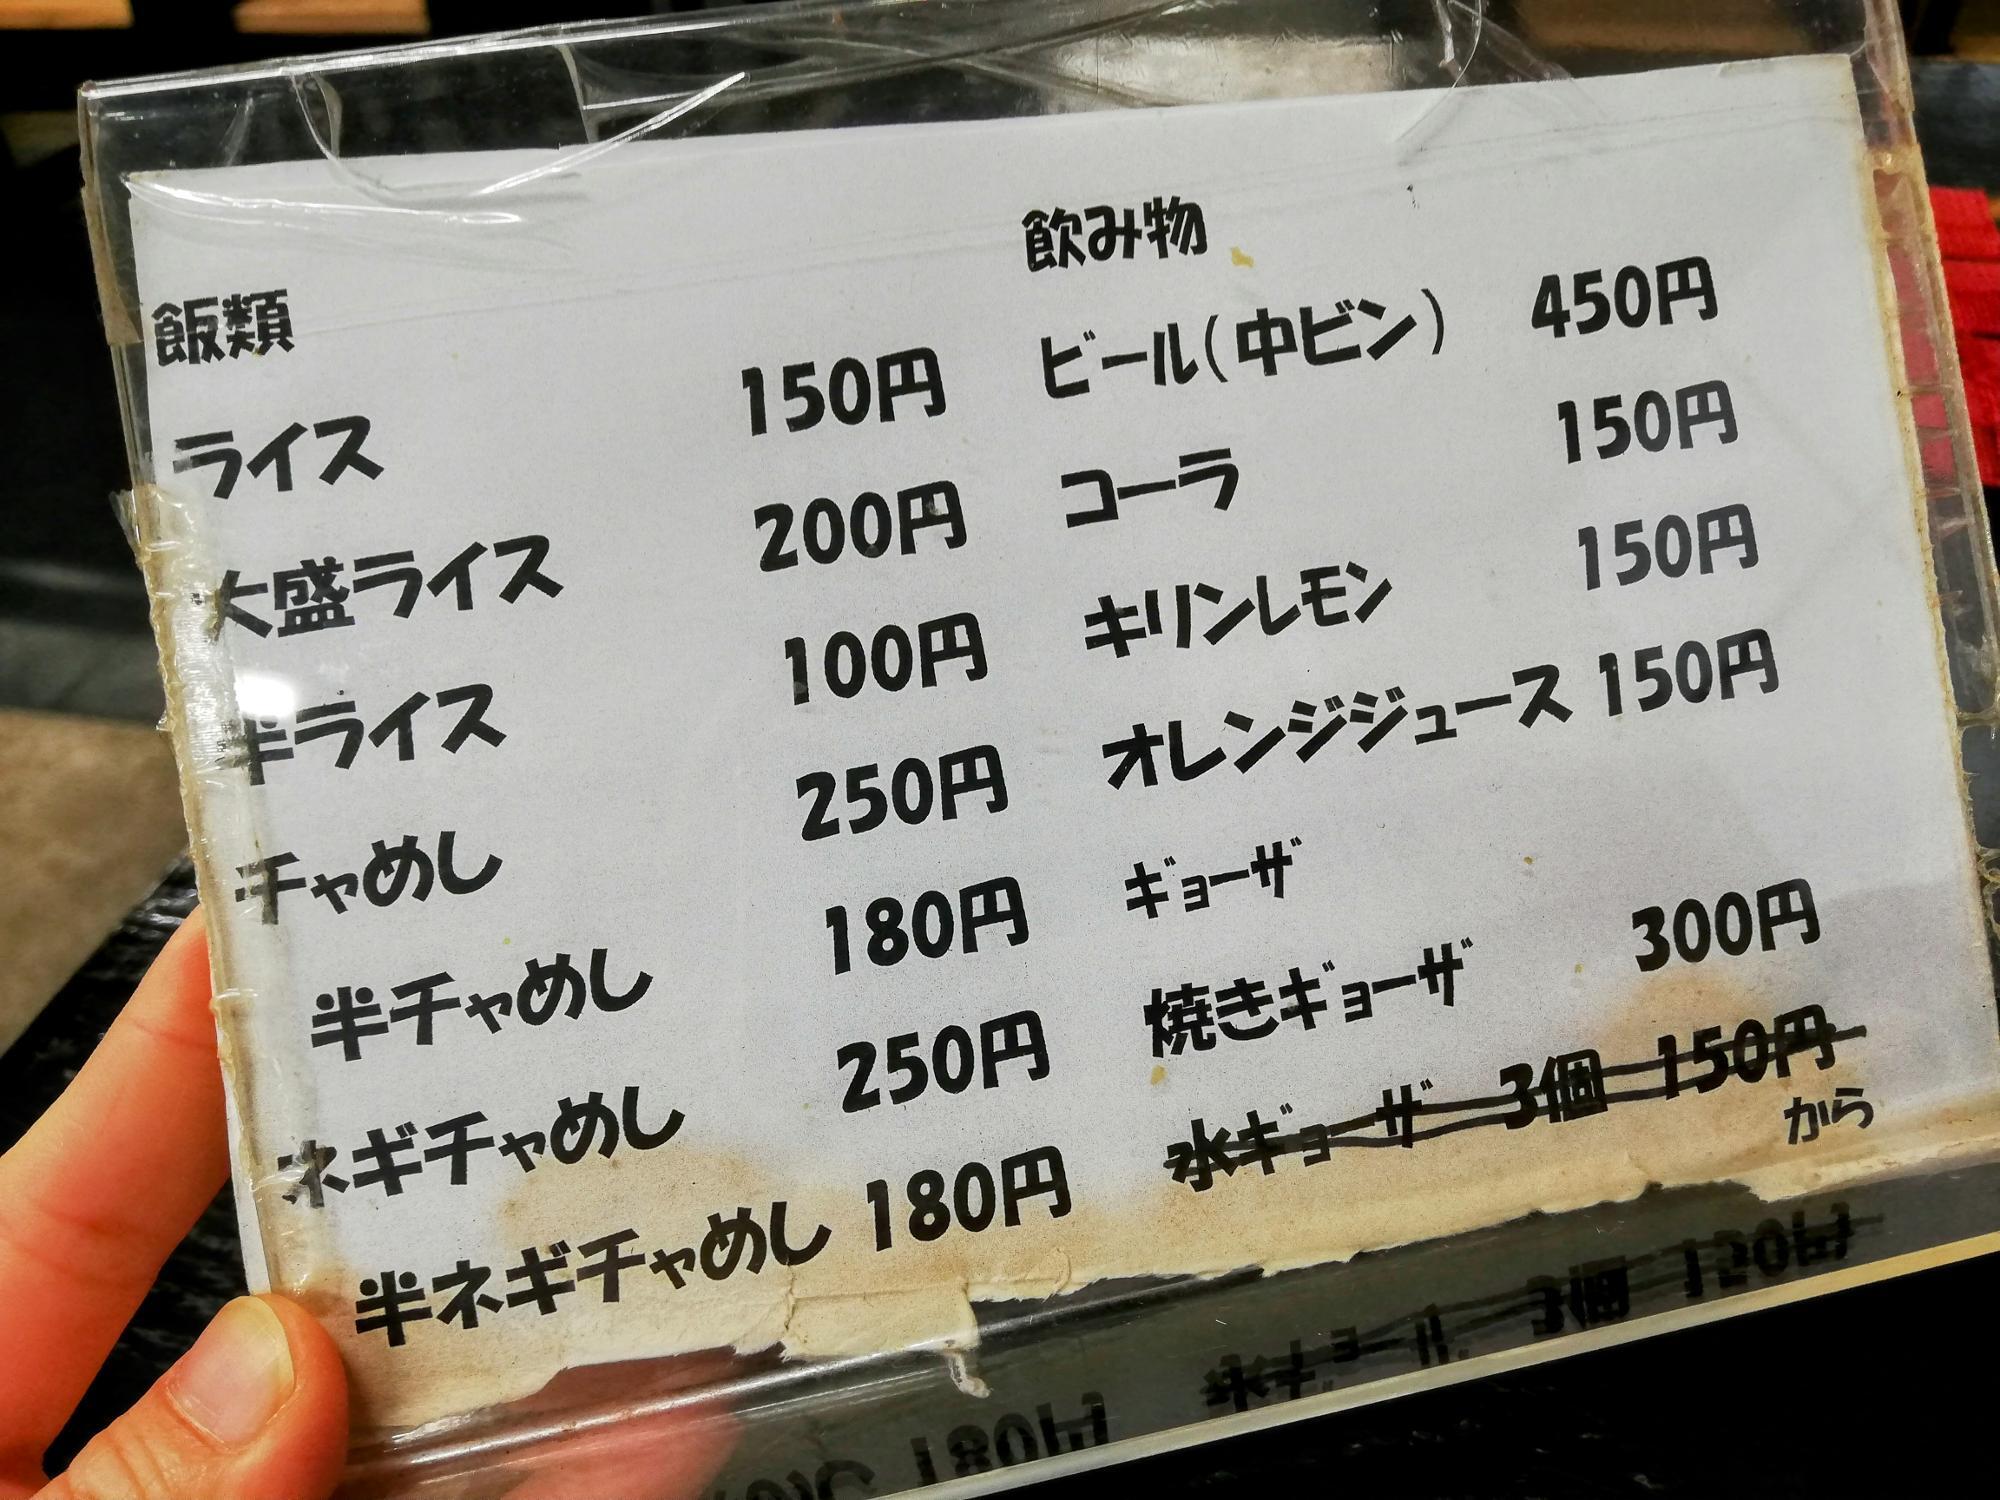 飯類
ライス 150円
大盛ライス 200円
半ライス 100円
チャめし 250円
半チャめし 180円
ネギチャめし 250円
半ネギチャめし 180円
飲み物
ビール(中ビン) 450円
コーラ 150円
キリンレモン 150円
オレンジジュース 150円
ギョーザ
焼きギョーザ 300円
水ギョーザ 3個 150円
から